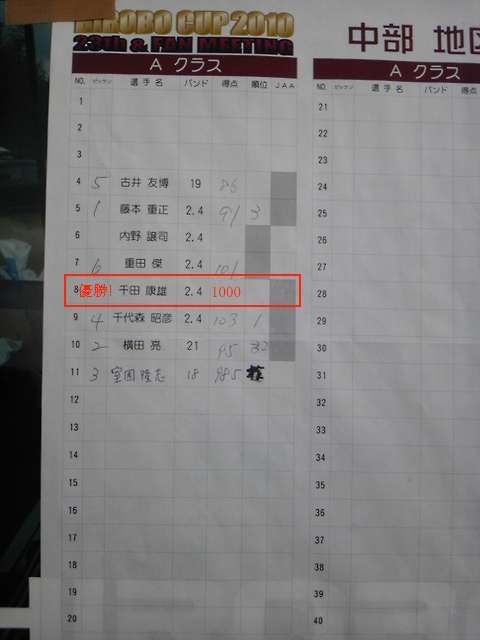 HIROBO CUP 2010
23th & FAN MEETING
A クラス
NO. ゼッケン 選手名 バンド 得点 順位 JAA
1
2
3
4 5 古井 友博 19 86
5 1 藤本 重正 2.4 91 3
6 内野 譲司 2.4
7 6 重田 傑 2.4 101
8 優勝! 千田 康雄 2.4 1000
9 4 千代森 昭彦 2.4 103 1
10 2 横田 亮 21 95
11 3 室園 隆志 18 985
12
13
14
15
16
17
18
19
20
中部 地区
A クラス
NO. ゼッケン 選手名 バンド 得点
21
22
23
24
25
26
27
28
29
30
31
32
33
34
35
36
37
38
39
40